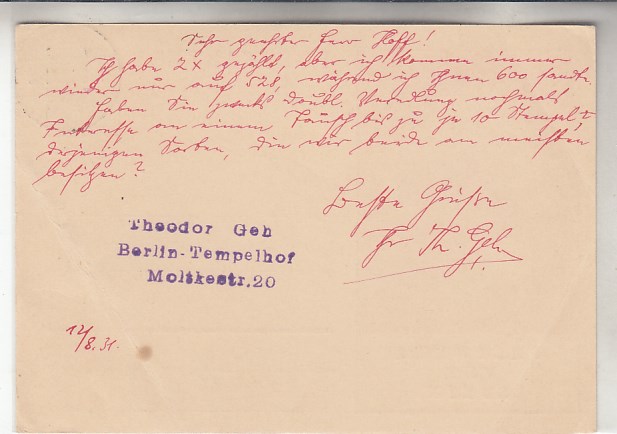 Sehr geehrter Herr Hoff!
Ich habe 2x gezählt, aber ich komme immer
wieder nur auf 528, während ich Ihnen 600 sandte.
Haben Sie zwecks Doubl. nochmals
Interesse an einem Tausch bis zu je 10 Stempel,
derjenigen Sorten, die wir beide am meisten
besitzen?
Beste Grüsse
Ihr Th. Geh
Theodor Geh
Berlin-Tempelhof
Moltkestr. 20
12/8.31.